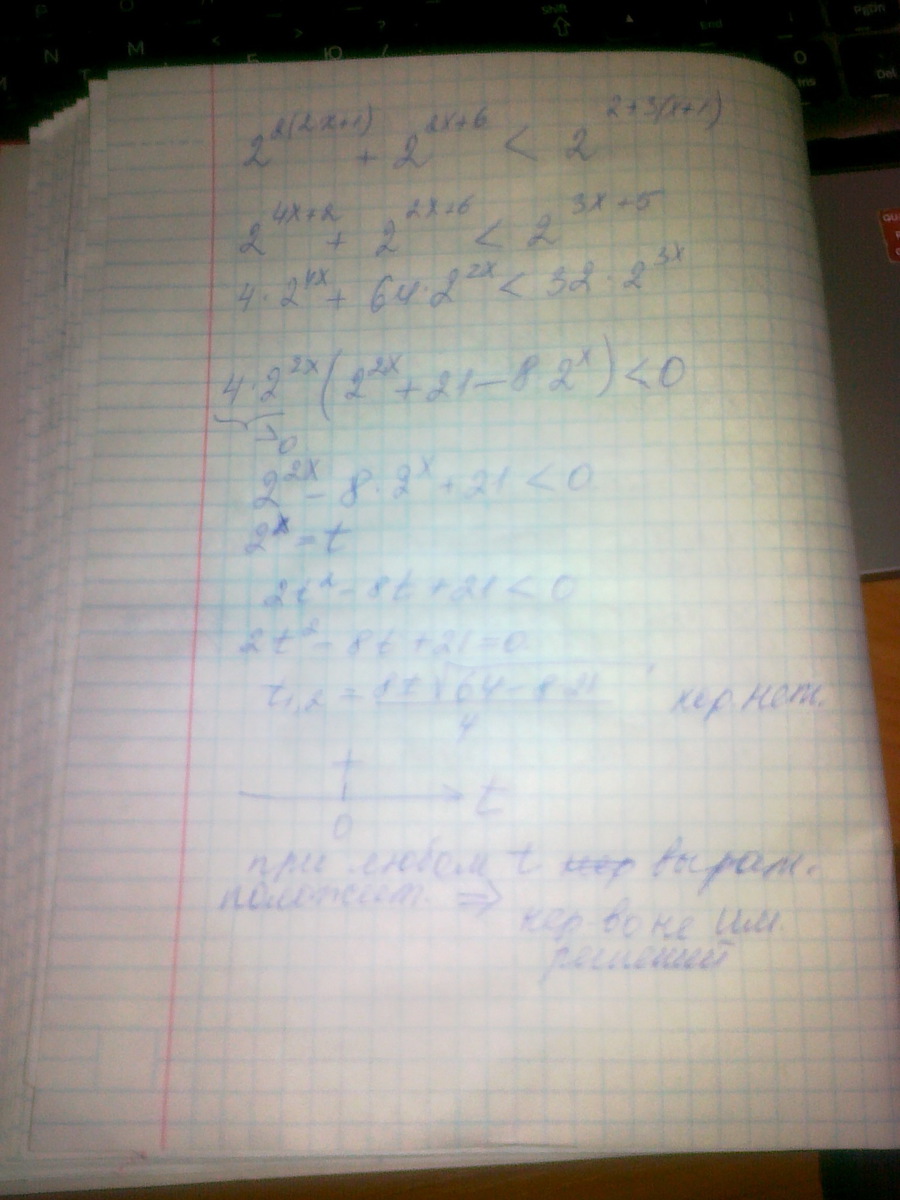 2^{2(2x+1)} + 2^{2x+6} < 2^{2+3(x+1)}
2^{4x+2} + 2^{2x+6} < 2^{3x+5}
4·2^{4x} + 64·2^{2x} < 32·2^{3x}
4·2^{2x}(2^{2x}+21-8 2^x) < 0
>0
2^{2x} - 8·2^x + 21 < 0
2^x = t
2t² - 8t + 21 < 0
2t² - 8t + 21 = 0
t_{1,2} = 8±√64-8·21 / 4 кор. нет.
+
t
0
при любом t выраж.
положит. ⇒
нер во не им.
решений